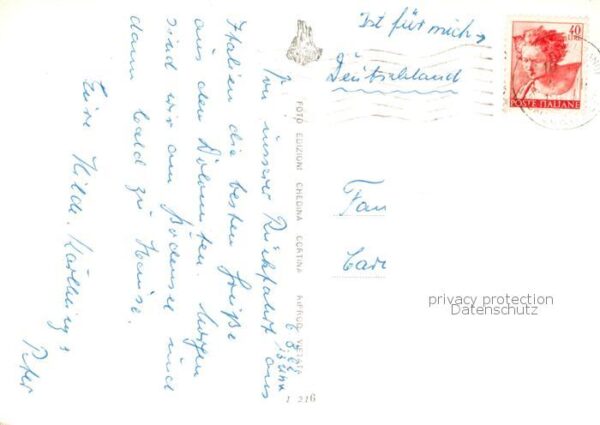 Ist für mich,
Deutschland
40
POSTE ITALIANE
Von unserer Rückfahrt aus
Italien die besten Grüße
aus den Dolomiten. Morgen
sind wir am Bodensee und
dann bald zu Hause.
Eure Hilde, Karlheinz
Peter
FOTO EDIZIONI GHEDINA CORTINA RIPROD. VIETATA
1 216
Fam
Carl
privacy protection
Datenschutz